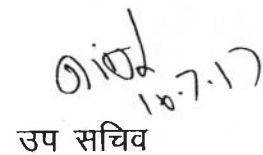 10.7.17
उप सचिव